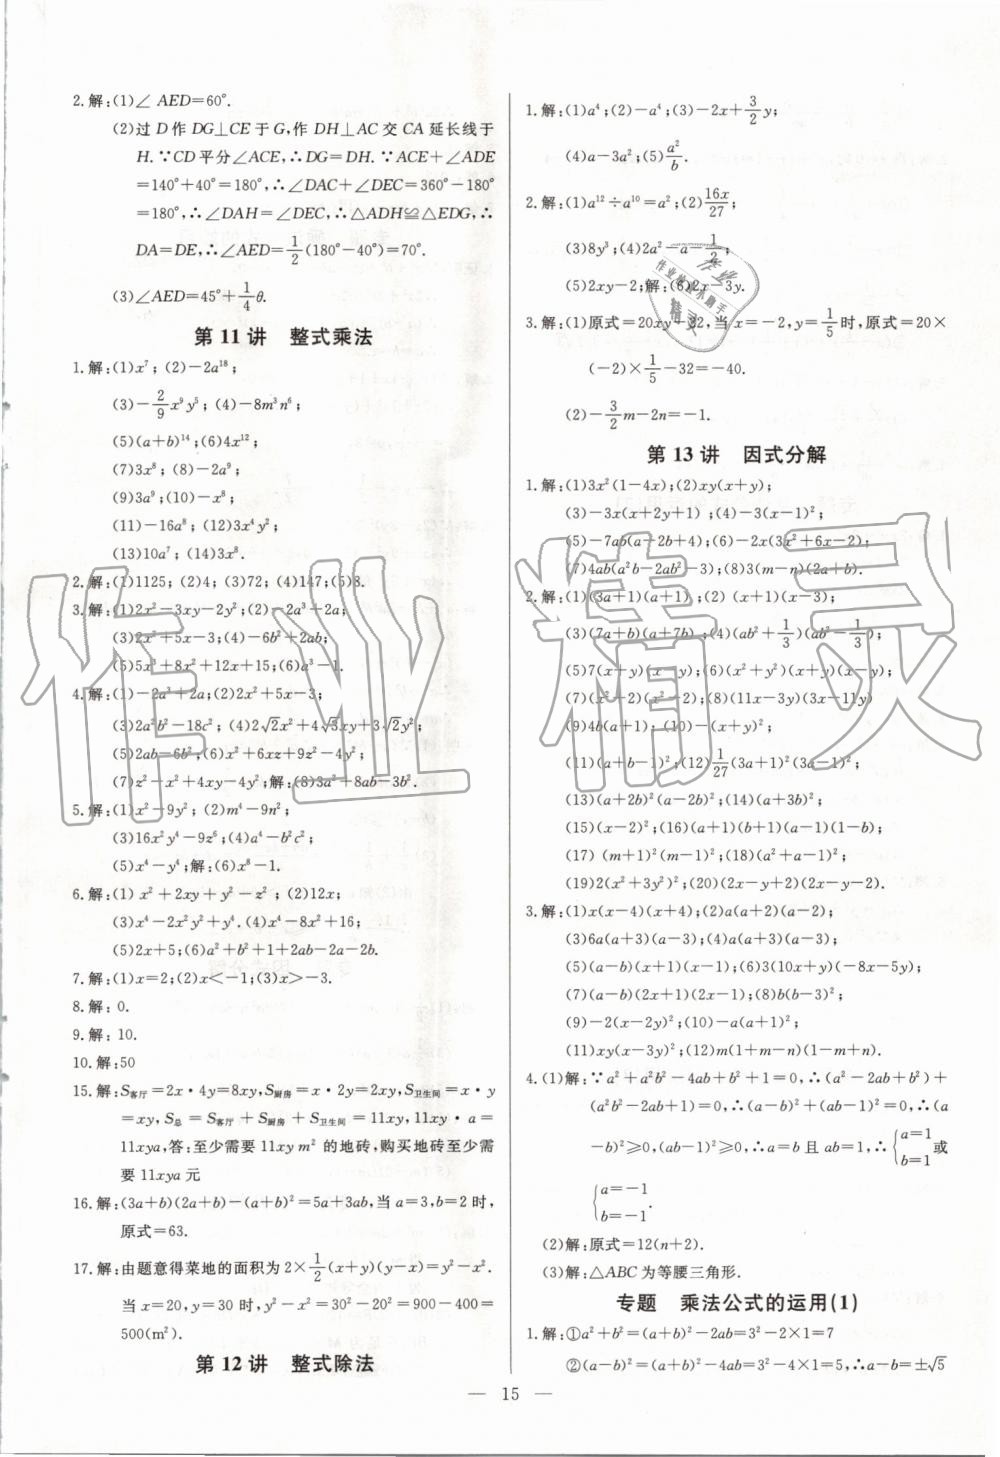 2.解:(1)∠AED=60°.
(2)过 D 作 DG⊥CE 于 G,作 DH⊥AC 交 CA 延长线于
H.∵CD 平分∠ACE,∴DG=DH.∵∠ACE+∠ADE
=140°+40°=180°,∴∠DAC+∠DEC=360°-180°
=180°,∴∠DAH=∠DEC,∴△ADH≌△EDG,∴
DA=DE,∴∠AED=1/2(180°-40°)=70°.
(3)∠AED=45°+1/4θ.
第 11 讲 整式乘法
1.解:(1)x⁷; (2)-2a¹⁸;
(3)-2/9x⁹y⁵; (4)-8m³n⁶;
(5)(a+b)¹⁴; (6)4x¹²;
(7)3x⁸; (8)-2a⁹;
(9)3a⁹; (10)-x⁸;
(11)-16a⁸; (12)3x⁴y²;
(13)10a⁷; (14)3x⁸.
2.解:(1)1125; (2)4; (3)72; (4)147; (5)8.
3.解:(1)2x²-3xy-2y²; (2)-2a³+2a;
(3)2x²+5x-3; (4)-6b²+2ab;
(5)5x³+8x²+12x+15; (6)a³-1.
4.解:(1)-2a³+2a; (2)2x²+5x-3;
(3)2a²b²-18c²; (4)2√2x²+4√3xy+3√2y²;
(5)2ab-6b²; (6)x²+6xz+9z²-4y²;
(7)z²-x²+4xy-4y²;解:(8)3a²+8ab-3b².
5.解:(1)x²-9y²; (2)m⁴-9n²;
(3)16x²y⁴-9z⁶; (4)a⁴-b²c²;
(5)x⁴-y⁴;解:(6)x⁸-1.
6.解:(1) x²+2xy+y²-z²; (2)12x;
(3)x⁴-2x²y²+y⁴. (4)x⁴-8x²+16;
(5)2x+5; (6)a²+b²+1+2ab-2a-2b.
7.解:(1)x=2; (2)x<-1; (3)x>-3.
8.解: 0.
9.解: 10.
10.解:50
15.解:S客厅=2x·4y=8xy,S厨房=x·2y=2xy,S卫生间=x·y
=xy,S总=S客厅+S厨房+S卫生间=11xy,11xy·a=
11xya,答:至少需要 11xy m² 的地砖,购买地砖至少需
要 11xya 元
16.解:(3a+b)(2a+b)-(a+b)²=5a+3ab,当 a=3,b=2 时,
原式=63.
17.解:由题意得菜地的面积为 2×1/2(x+y)(y-x)=y²-x².
当 x=20,y=30 时,y²-x²=30²-20²=900-400=
500(m²).
第 12 讲 整式除法
1.解:(1)a⁴;(2)-a⁴;(3)-2x+3/2y;
(4)a-3a²;(5)a²/b.
2.解:(1)a¹²÷a¹⁰=a²;(2)16x/27;
(3)8y³;(4)2a²-a-1/2;
(5)2xy-2;解:(6)2x-3y.
3.解:(1)原式=20xy-32,当 x=-2,y=1/5时,原式=20×
(-2)×1/5-32=-40.
(2)-3/2m-2n=-1.
第 13 讲 因式分解
1.解:(1)3x²(1-4x);(2)xy(x+y);
(3)-3x(x+2y+1) ;(4)-3(x-1)²;
(5)-7ab(a-2b+4);(6)-2x(3x²+6x-2);
(7)4ab(a²b-2ab²-3);(8)3(m-n)(2a+b).
2.解:(1)(3a+1)(a+1);(2) (x+1)(x-3);
(3)(7a+b)(a+7b);(4)(ab²+1/3)(ab²-1/3);
(5)7(x+y)(x-y);(6)(x²+y²)(x+y)(x-y);
(7)(x²+2)(x²-2);(8)(11x-3y)(3x-11y)
(9)4b(a+1);(10)-(x+y)²;
(11)(a+b-1)²;(12)1/27(3a+1)²(3a-1)²;
(13)(a+2b)²(a-2b)²;(14)(a+b)²;
(15)(x-2)²;(16)(a+1)(b+1)(a-1)(1-b);
(17) (m+1)²(m-1)²;(18)(a²+a-1)²;
(19)2(x²+3y²)²;(20)(2x-y+2)(2x-y-2).
3.解:(1)x(x-4)(x+4);(2)a(a+2)(a-2);
(3)6a(a+3)(a-3);(4)a(a+3)(a-3);
(5)(a-b)(x+1)(x-1);(6)3(10x+y)(-8x-5y);
(7)(a-b)(2x+1)(2x-1);(8)b(b-3)²;
(9)-2(x-2y)²;(10)-a(a+1)²;
(11)xy(x-3y)²;(12)m(1+m-n)(1-m+n).
4.(1)解:∵a²+a²b²-4ab+b²+1=0,∴(a²-2ab+b²)+
(a²b²-2ab+1)=0,∴(a-b)²+(ab-1)²=0,∴(a
-b)²≥0,(ab-1)²≥0,∴a=b 且 ab=1,∴{a=1 b=1 或
{a=-1 b=-1.
(2)解:原式=12(n+2).
(3)解:△ABC 为等腰三角形.
专题 乘法公式的运用(1)
1.解:①a²+b²=(a-b)²-2ab=3²-2×1=7
②(a-b)²=(a+b)²-4ab=3²-4×1=5,∴a-b=±√5
— 15 —
作业精灵